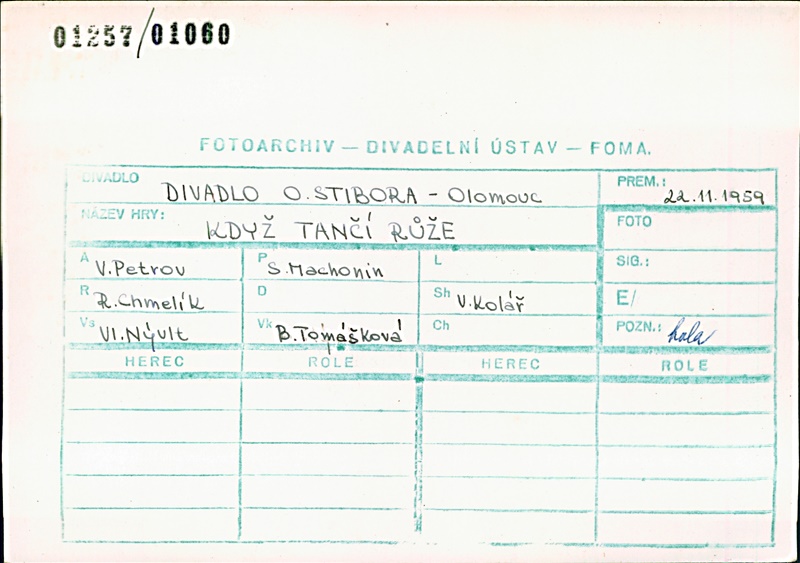 01257/01060
FOTOARCHIV — DIVADELNÍ ÚSTAV — FOMA.
DIVADLO DIVADLO O. STIBORA - Olomouc PREM.: 22.11.1959
NÁZEV HRY: KDYŽ TANČÍ RŮŽE FOTO
A V. Petrov P S. Machonin L SIG.:
R R. Chmelík D Sh V. Kolář E/
Vs Vl. Nývlt Vk B. Tomášková Ch POZN.: hala
HEREC ROLE HEREC ROLE